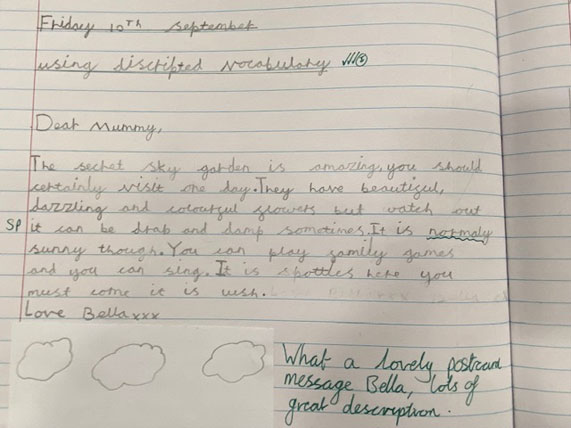 Friday 10Th september
using discripted vocabulary
Dear Mummy,
The secret sky garden is amazing, you should
certainly visit one day. They have beautigul,
dazzling and colourful flowers but watch out
SP it can be drab and damp sometimes. It is normaly
sunny though. You can play family games
and you can sing. It is spottles here you
must come it is lush.
Love Bella xxx
What a lovely postcard
message Bella, lots of
great description.